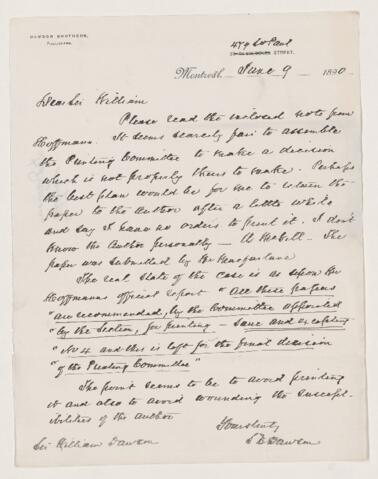 DAWSON BROTHERS,
PUBLISHERS.
479 St Paul
STREET.
Montreal, June 9 1890
Dear Sir William
Please read the inclosed note from
Hoffmann. It seems scarcely fair to assemble
the Printing Committee to make a decision
which is not properly theirs to make. Perhaps
the best plan would be for me to return the
paper to the author after a little while
and say I have no orders to print it. I don't
know the author personally — A McGill — The
paper was submitted by Dr Macfarlane
The real state of the case is as upon Mr
Hoffmanns official report "all these papers
"are recommended, by the Committee appointed
"by the Section, for printing — save and excepting
"No 4 and this is left for the final decision
"of the Printing Committee"
The point seems to be to avoid printing
it and also to avoid wounding the suscepti-
bilities of the author
Yours truly
S E Dawson
Sir William Dawson